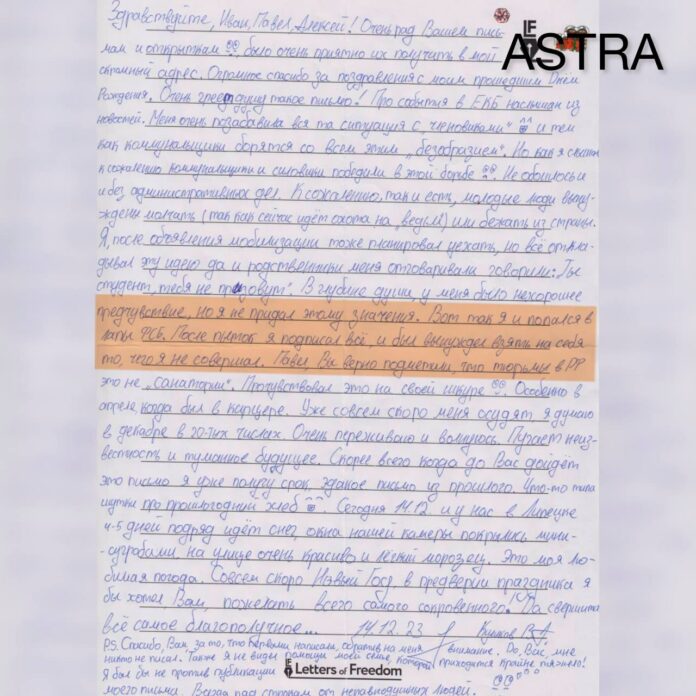 Здравствуйте, Иван, Павел, Алексей! Очень рад Вашем пись-
мам и открыткам было очень приятно их получить в мой
скромный адрес. Огромное спасибо за поздравления с моим прошедшим Днём
Рождения. Очень греет такое письмо! Про события в ЕКБ наслышан из
новостей. Меня очень позабавила вся та ситуация с "членовиками" и тем
как коммунальщики борятся со всем этим "безобразием". Но как я
к сожалению коммунальщики и силовики победили в этой борьбе. Не обошлось и
и без административных дел. К сожалению, так и есть, молодые люди вынуж-
ждены молчать (так как сейчас идёт охота на "ведьм") или бежать из страны.
Я, после объявления мобилизации тоже планировал уехать, но всё откла-
дывал эту идею да и родственники меня отговаривали говорили: "Ты
студент, тебя не призовут". В глубине души, у меня было нехорошее
предчувствие, но я не придал этому значения. Вот так я и попался в
лапы ФСБ. После пыток я подписал всё, и был вынужден взять на себя
то, чего я не совершал. Павел, Вы верно подметили, что тюрьмы в РФ
это не "санатории". Прочувствовал это на своей шкуре. Особенно в
апреле, когда был в карцере. Уже совсем скоро меня осудят я думаю
в декабре в 20-тых числах. Очень переживаю и волнуюсь. Пугает неиз-
вестность и туманное будущее. Скорее всего когда до Вас дойдёт
это письмо я уже получу срок, эдакое письмо из прошлого. Что-то типа
шутки про прошлогодний хлеб. Сегодня 14.12 и у нас в Липецке
4-5 дней подряд идёт снег, окна нашей камеры покрылись мини-
-сугробами на улице очень красиво и лёгкий морозец. Это моя лю-
бимая погода. Совсем скоро Новый Год, в предверии праздника я
бы хотел Вам, пожелать всего самого сокровенного. Да свершится
всё самое благополучное... 14.12.23
P.S. Спасибо, Вам, за то, что первыми написали, обратив на меня внимание. До, Вас, мне
никто не писал. Также я не вижу помощи моей семье, которой приходится крайне тяжело!
Я был бы не против публикации
моего письма. Всегда рад строкам от неравнодушных людей.
IF
ASTRA
IF Letters of Freedom